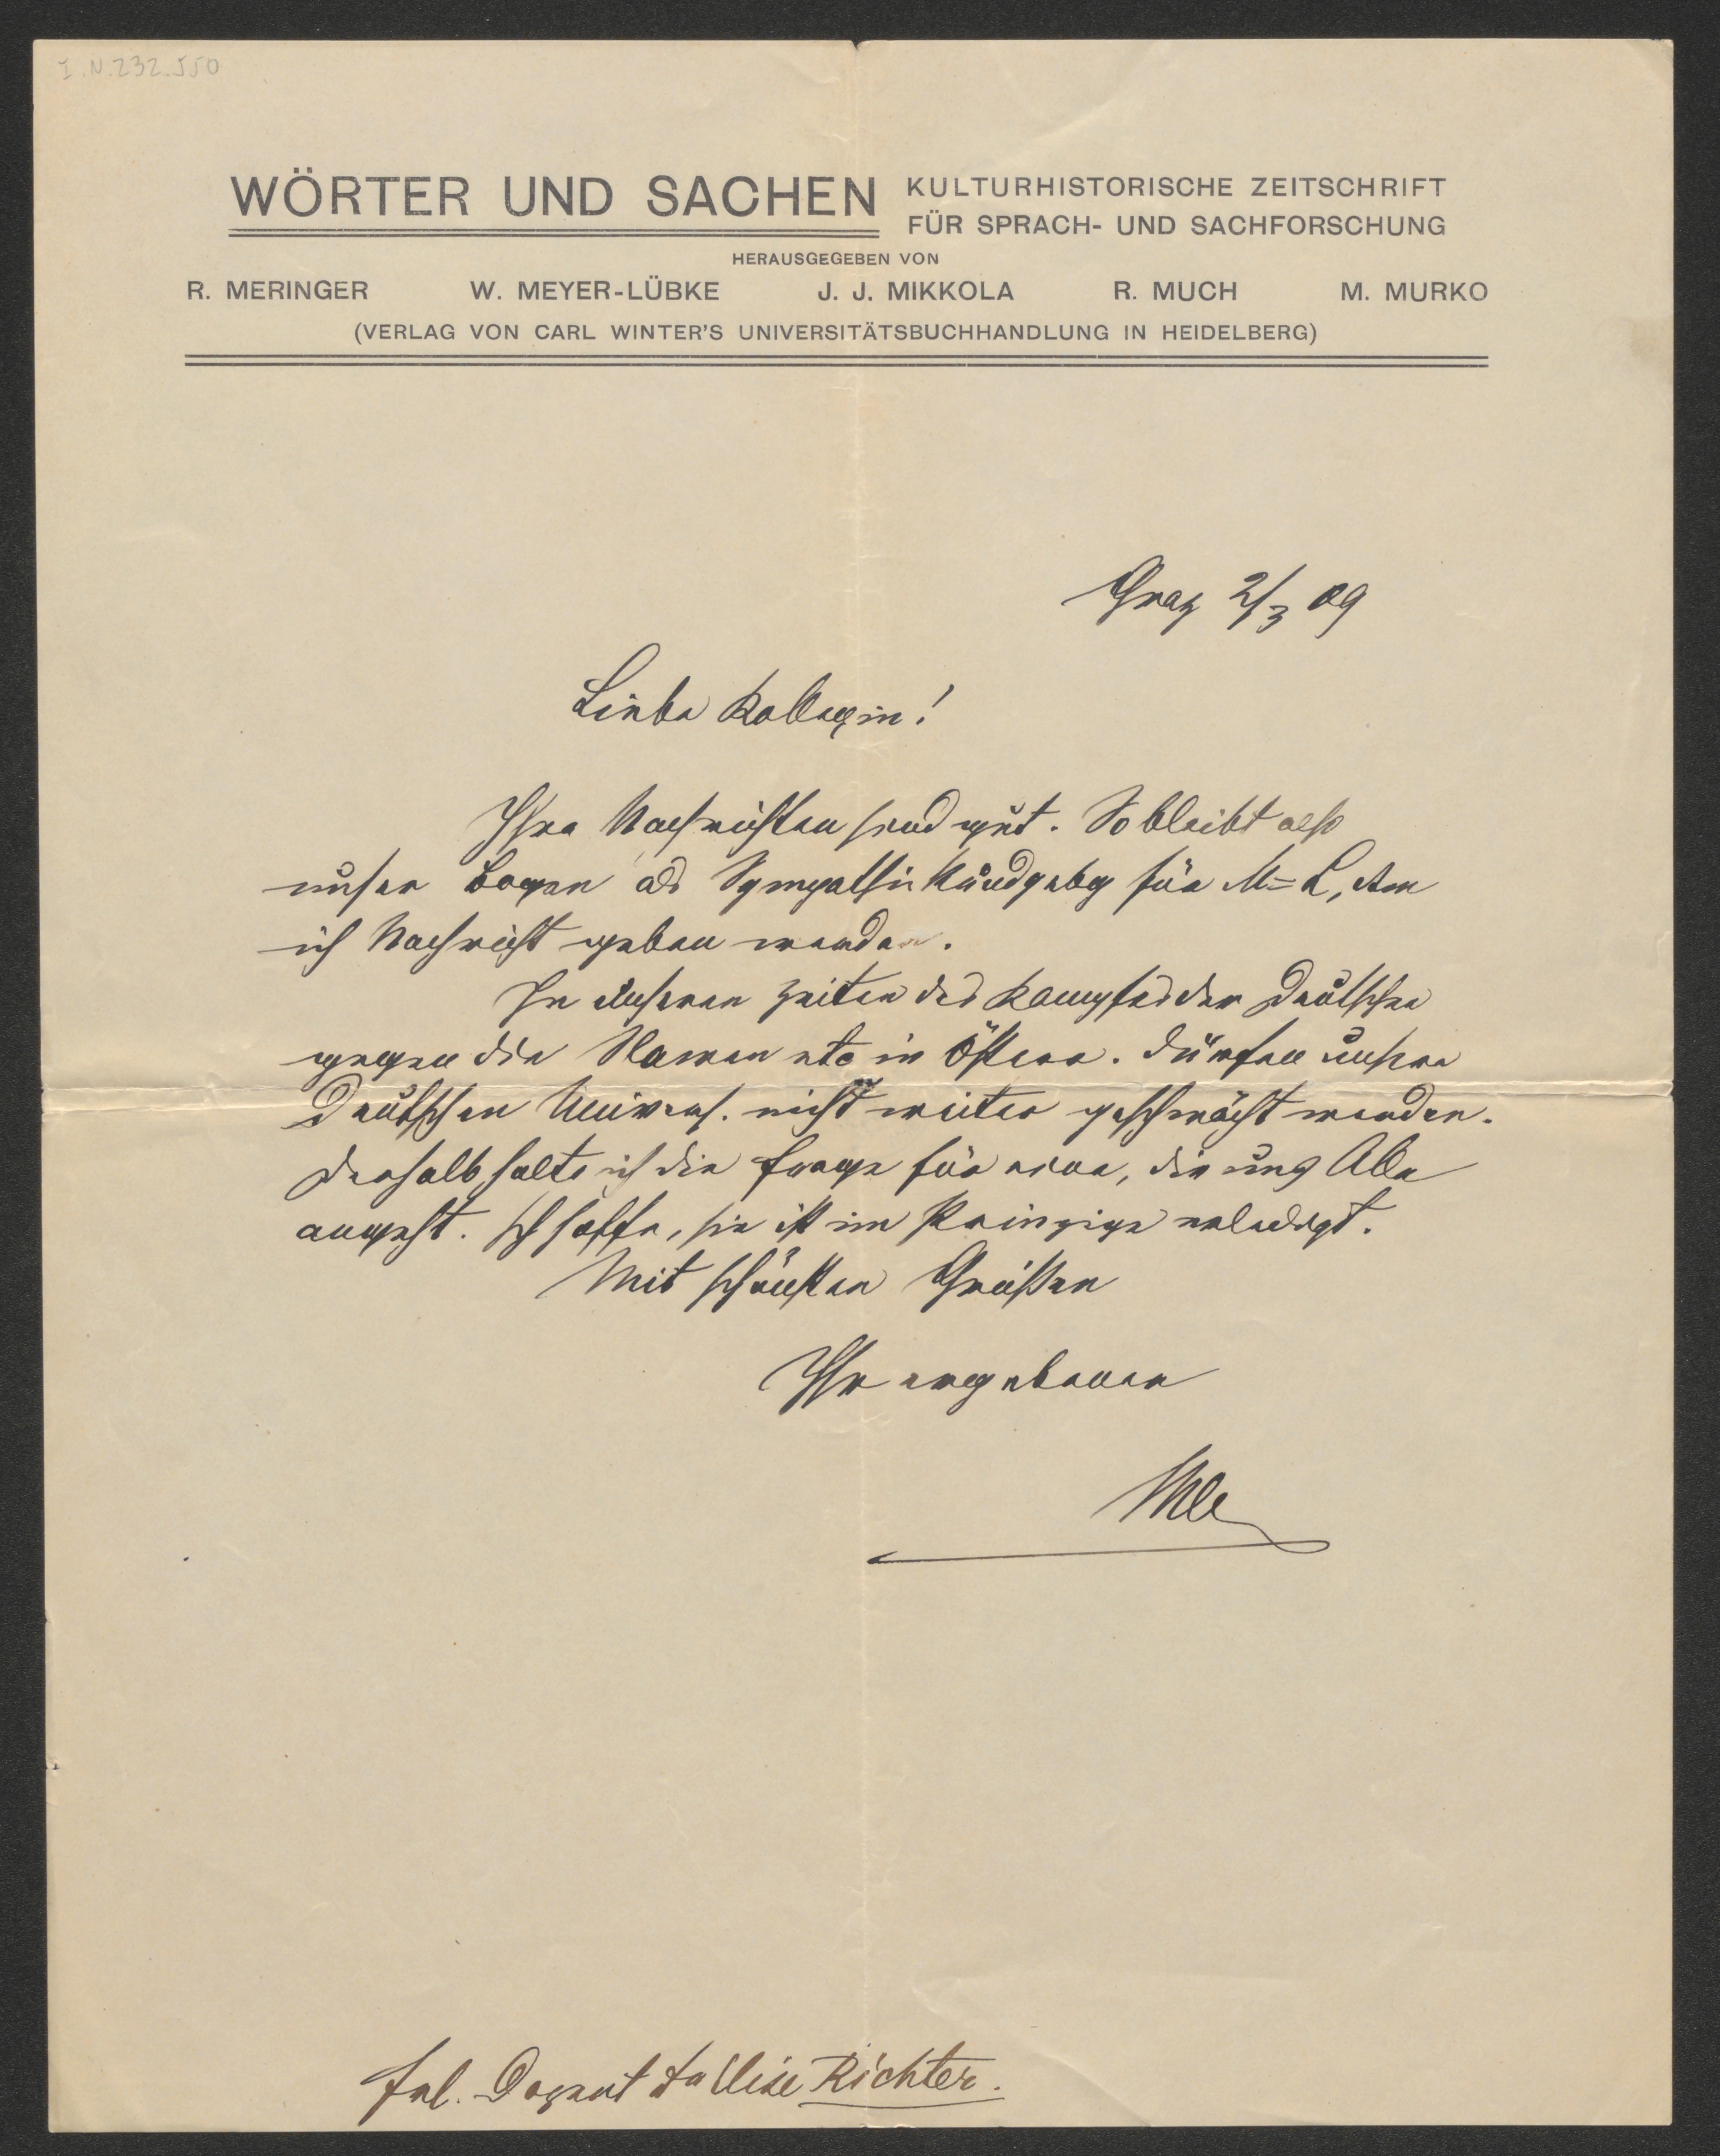 I.N.232.550
WÖRTER UND SACHEN
KULTURHISTORISCHE ZEITSCHRIFT
FÜR SPRACH- UND SACHFORSCHUNG
HERAUSGEGEBEN VON
R. MERINGER W. MEYER-LÜBKE J. J. MIKKOLA R. MUCH M. MURKO
(VERLAG VON CARL WINTER'S UNIVERSITÄTSBUCHHANDLUNG IN HEIDELBERG)
Graz 2/3 09
Liebe Kollegin!
Ihre Nachrichten sind gut. So bleibt also
unser Bogen als Sympathiekundgebg für M=L, dem
ich Nachricht geben werde.
In unseren Zeiten des Kampfes der Deutschen
gegen die Slawen etc in Österr. dürfen unsere
Deutschen Univers. nicht weiter geschwächt werden.
Deshalb halte ich die Frage für eine, die uns Alle
angeht. Ich hoffe, sie ist im Prinzipe erledigt.
Mit schönsten Grüßen
Ihr ergebener
Frl. Dozent Dr Elise Richter.